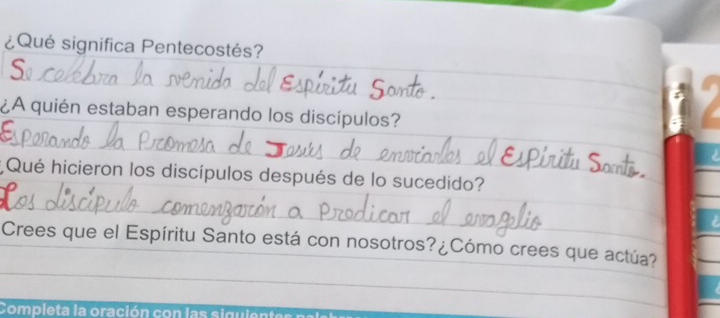 ¿Qué significa Pentecostés?
Se celebra la venida del Espíritu Santo.
¿A quién estaban esperando los discípulos?
Esperando la Promesa de Jesús de enviarles el Espíritu Santo.
¿Qué hicieron los discípulos después de lo sucedido?
Los discípulo comenzarón a predicar el evagelio
Crees que el Espíritu Santo está con nosotros?¿Cómo crees que actúa?
Completa la oración con las siguientes
2